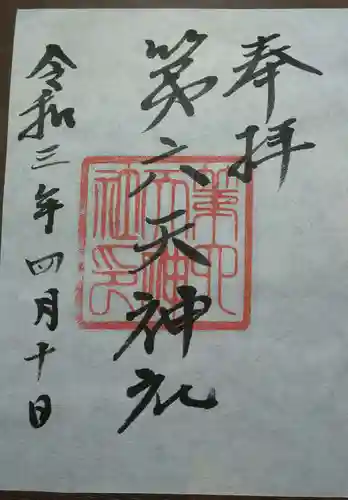 奉拝
第六天神社
令和三年四月十日
第六
天神
社印